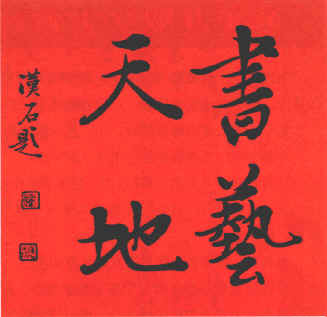 書藝
天地
漢石題